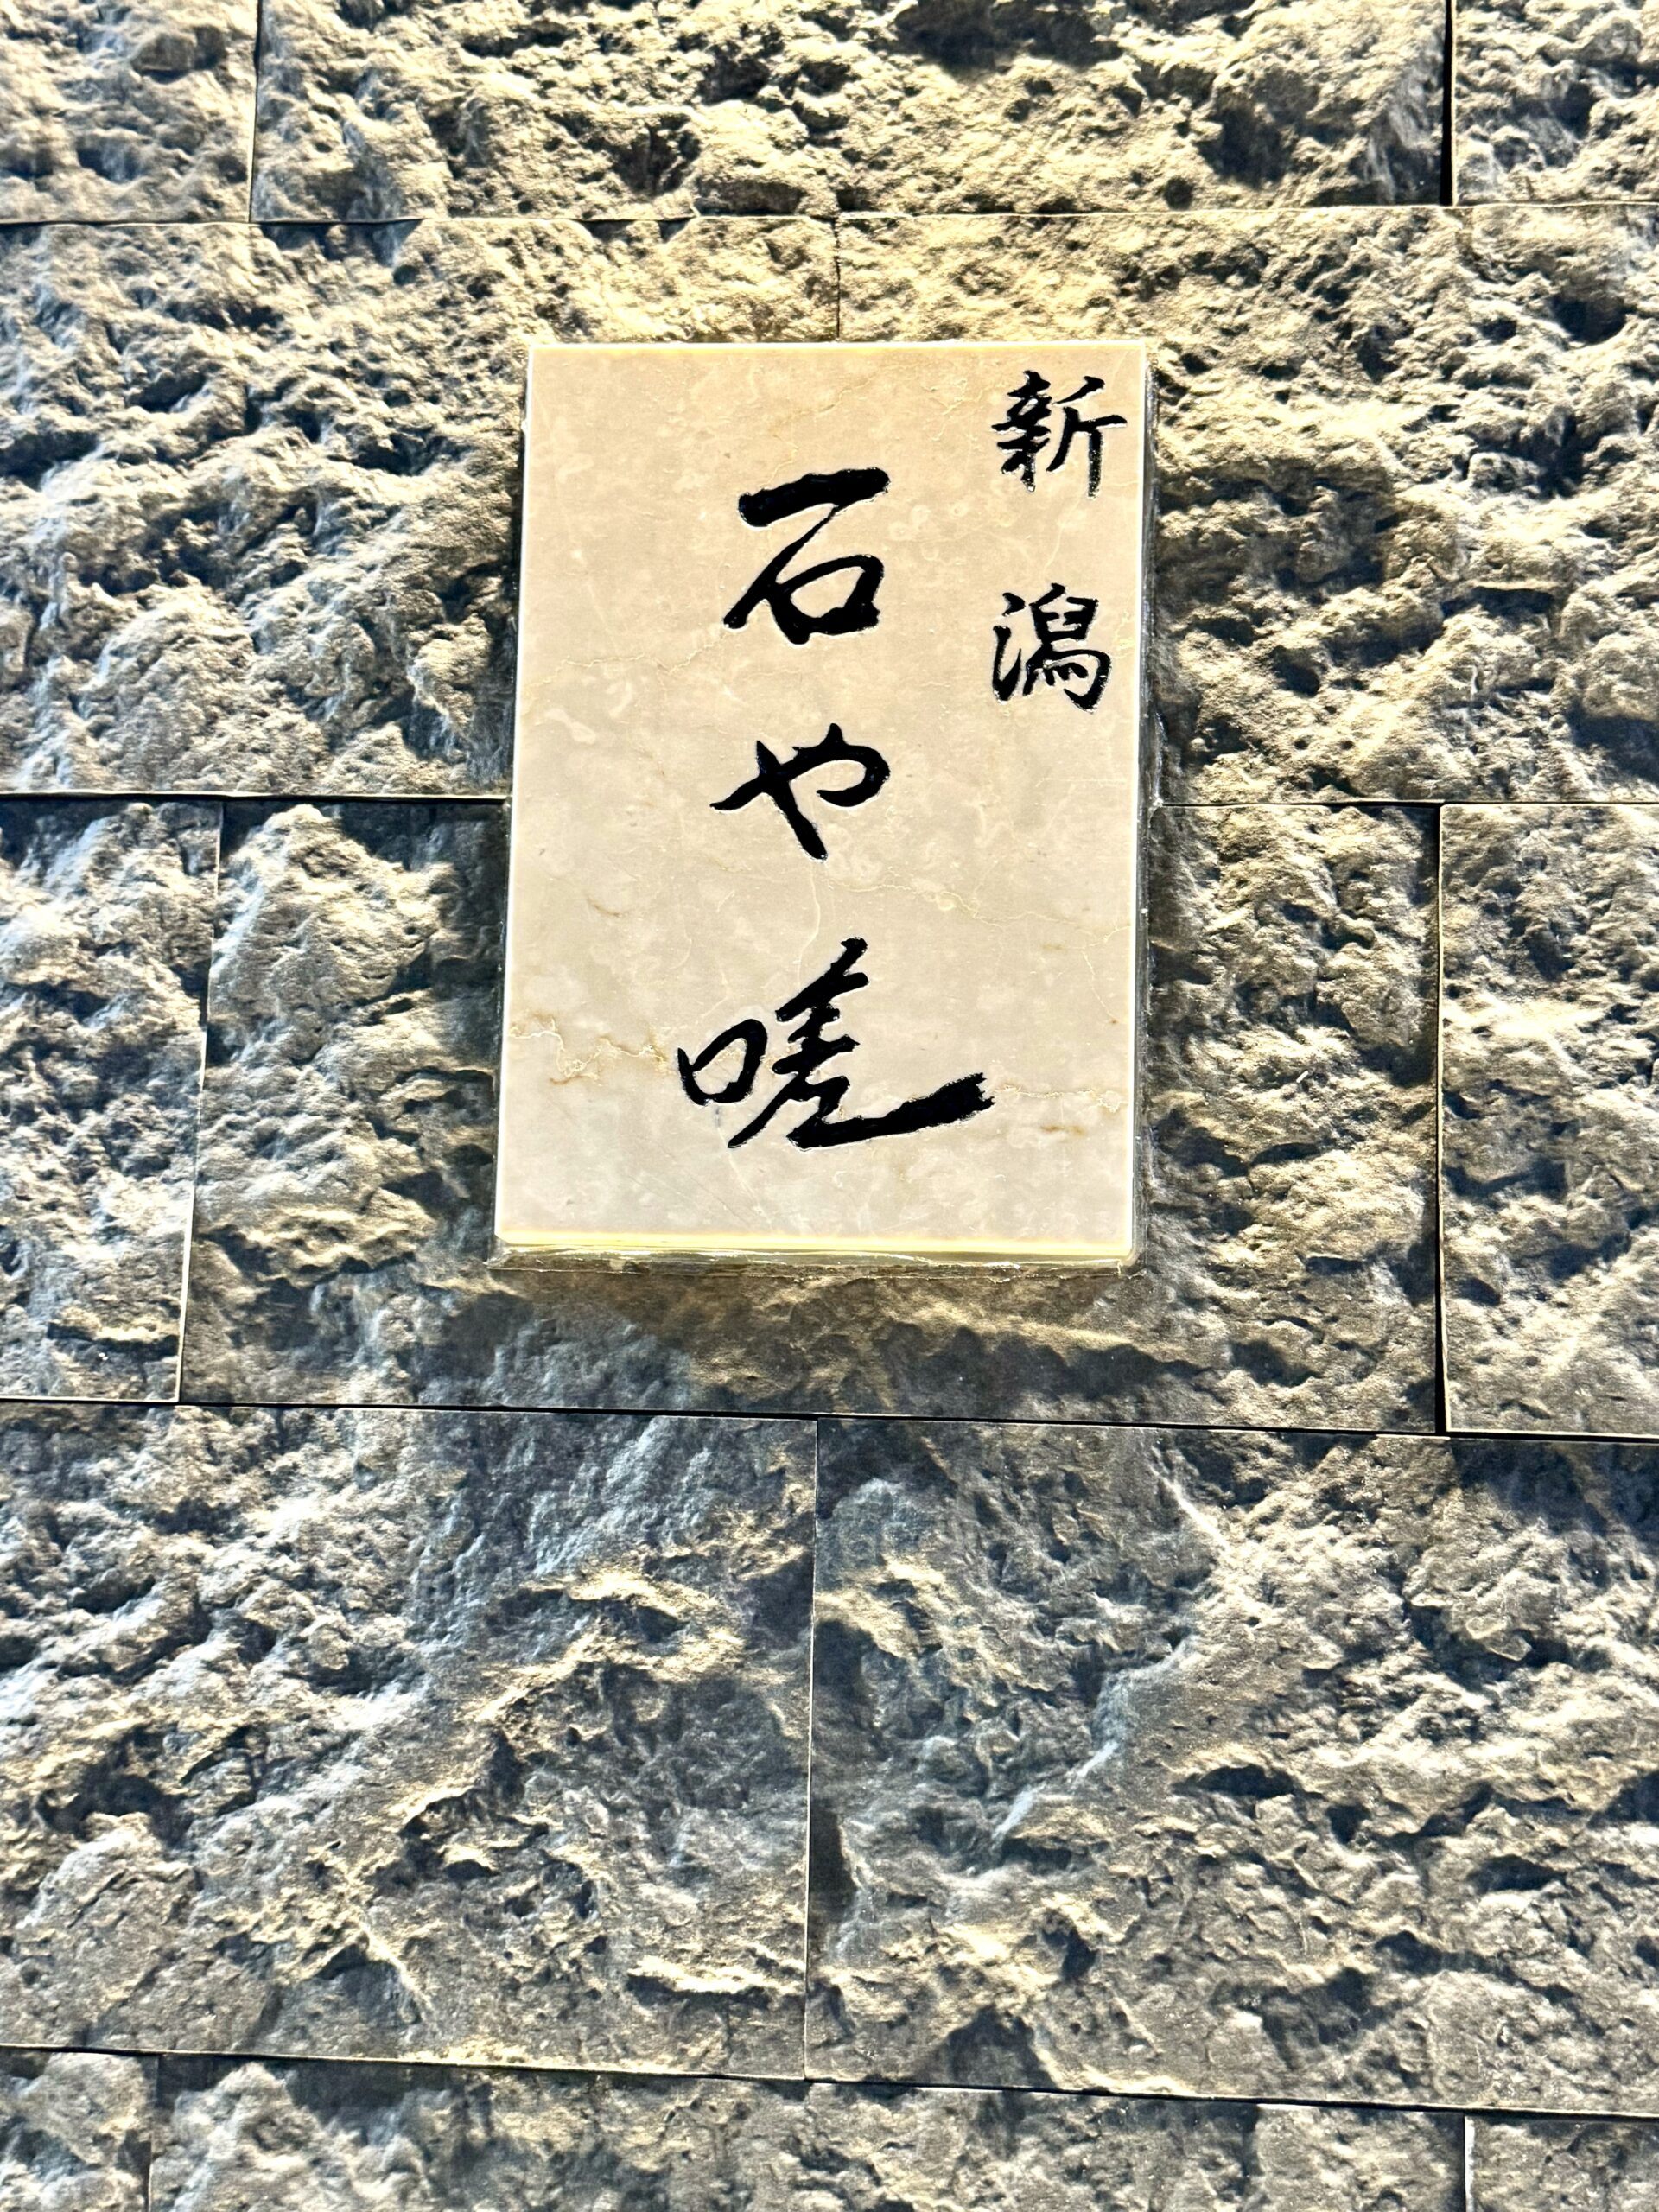 新潟
石や